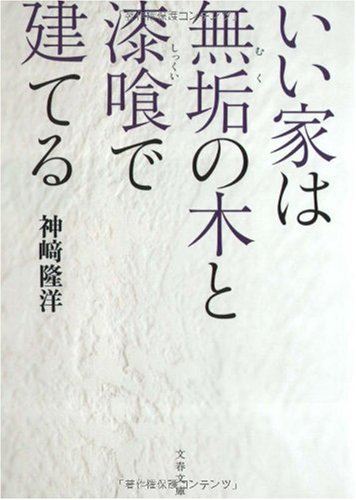 「著作権保護コンテンツ」
いい家は
無垢の木と
むく
漆喰で
しっくい
建てる
神﨑隆洋
文春文庫
「著作権保護コンテンツ」